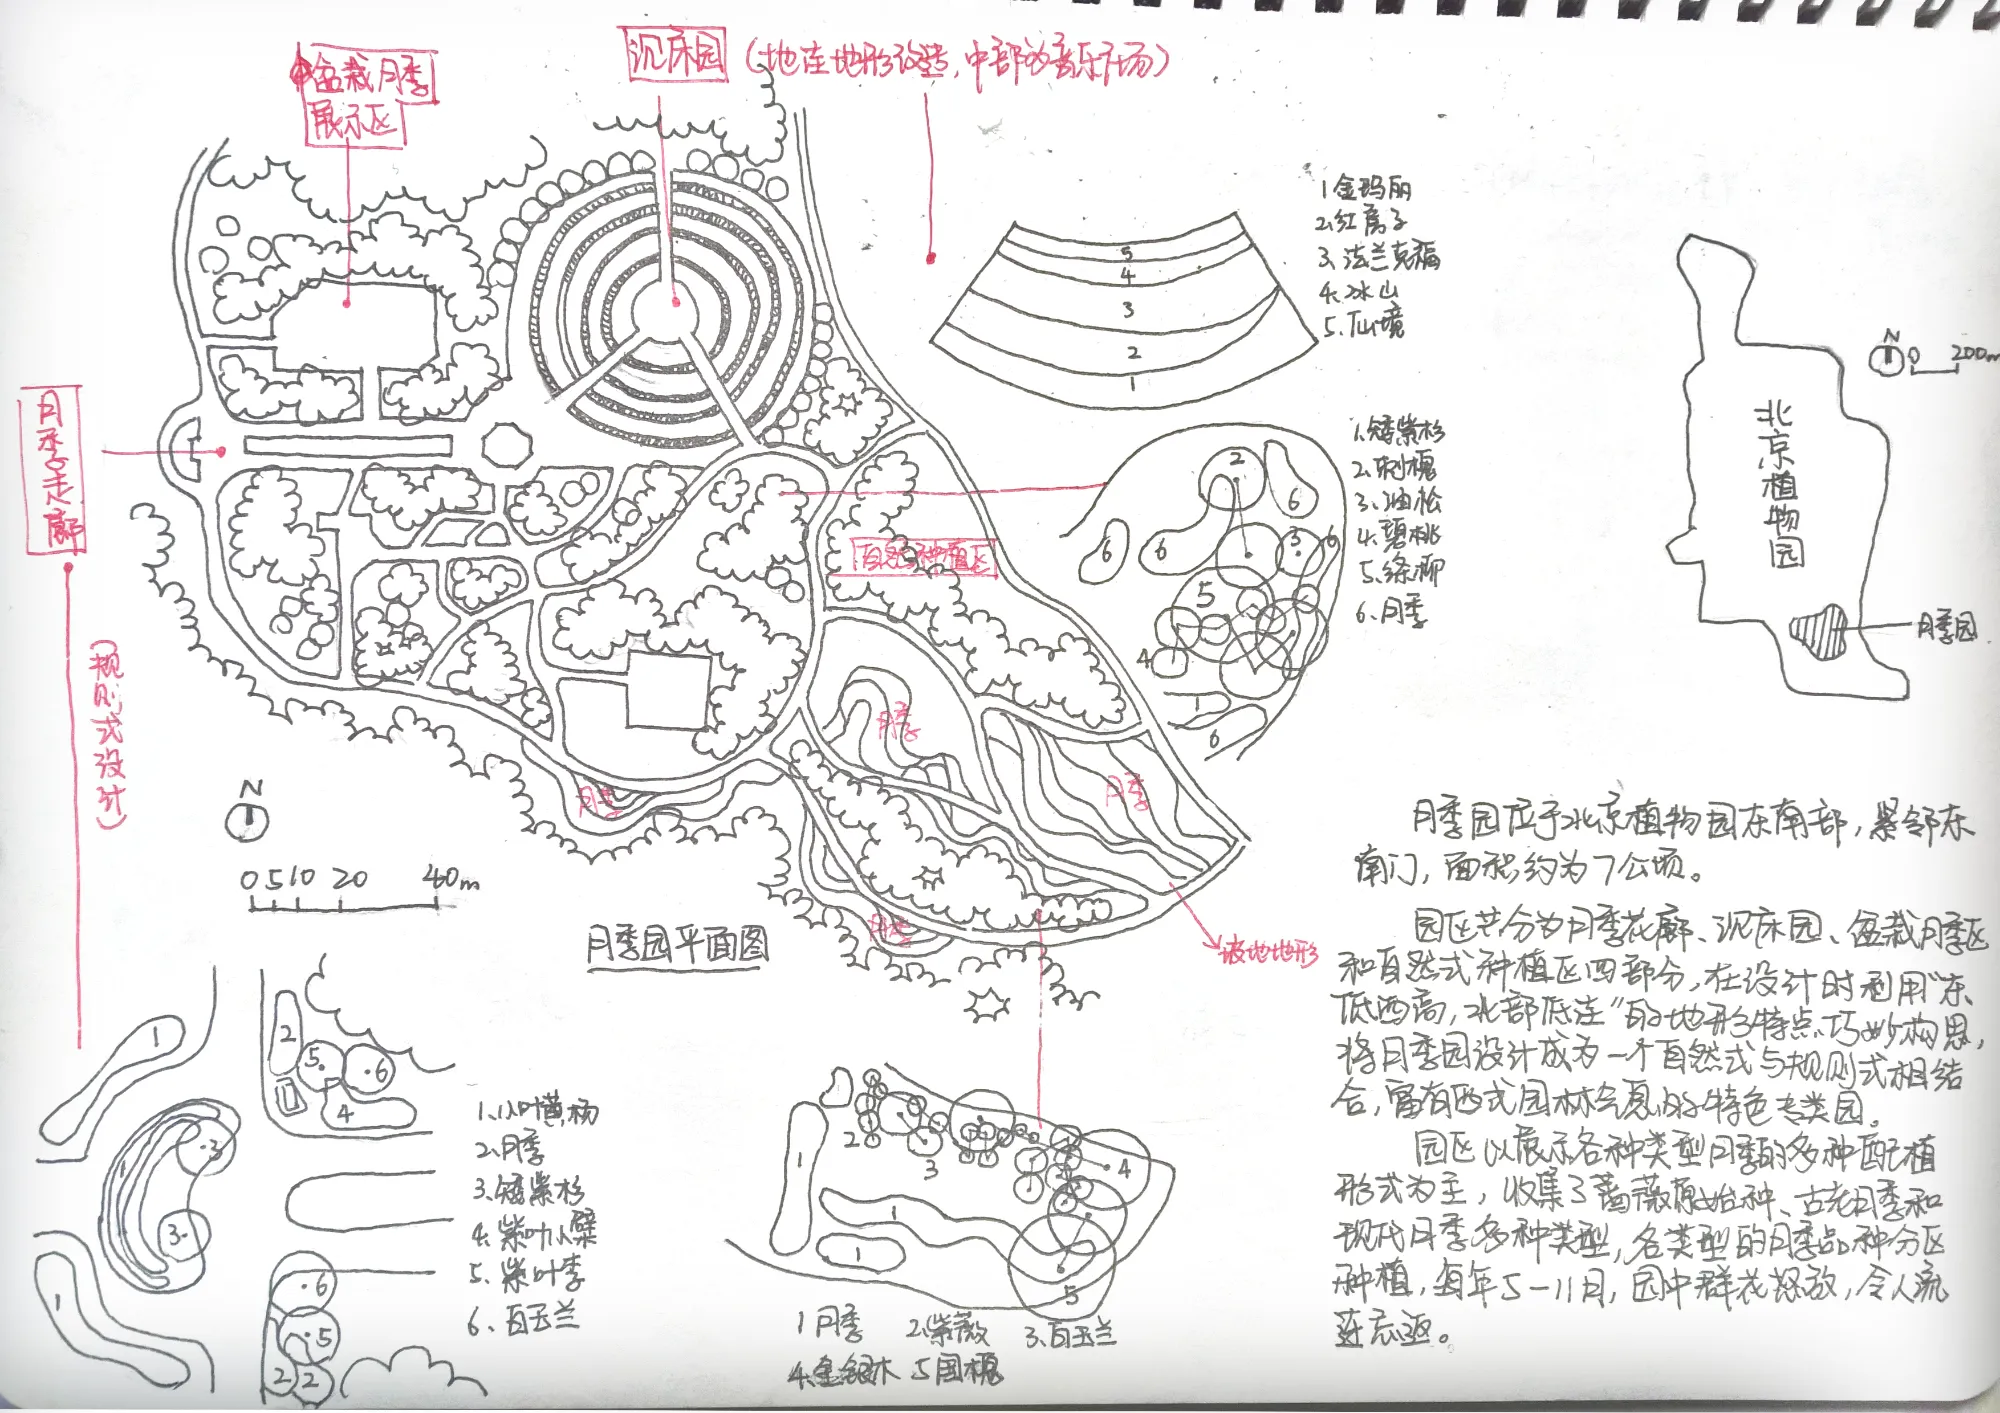 盆栽月季
展示区
沉床园（地连地形改造，中部为音乐广场）
1 金玛丽
2.红房子
3、法兰克福
4.冰山
5.仙境
5
4
3
2
1
N
0 200m
北京植物园
月季园
月季走廊
（规则式设计）
1.矮紫杉
2.刺槐
3.油松
4.碧桃
5.绦柳
6.月季
2
6
6
6
3
6
5
4
1
6
自然式种植区
月季
月季
月季
月季
坡地地形
N
0 5 10 20 40m
月季园平面图
月季园位于北京植物园东南部，紧邻东
南门，面积约为7公顷。
园区共分为月季花廊、沉床园、盆栽月季区
和自然式种植区四部分，在设计时利用“东
低西高，北部低连”的地形特点巧妙构思，
将月季园设计成为一个自然式与规则式相结
合，富有西式园林气息的特色专类园。
园区以展示各种类型月季的多种配植
形式为主，收集了蔷薇原始种、古老月季和
现代月季多种类型，各类型的月季品种分区
种植，每年5-11月，园中群花怒放，令人流
连忘返。
1
2
5
6
4
3
1
3
1
6
5
2
2
1.小叶黄杨
2.月季
3.矮紫杉
4.紫叶小檗
5.紫叶李
6、白玉兰
1
2
3
4
1
1
5
1月季 2.紫薇 3.白玉兰
4.金银木 5国槐